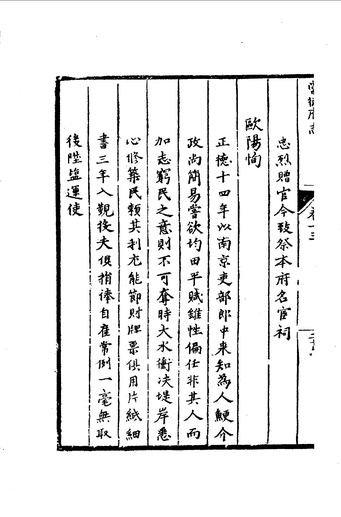 忠烈贈官令致祭本府名宦祠
歐陽恂
正德十四年以南京吏部郎中来知為人鯁介
政尚簡易嘗欲均田平賦雖性偏任非其人而
加志窮民之意則不可奪時大水衝决堤岸悉
心修築民頼其利尤能節財牌票俱用片紙細
書三年入覲後夫俱捐俸自雇常例一毫無取
後陞鹽運使